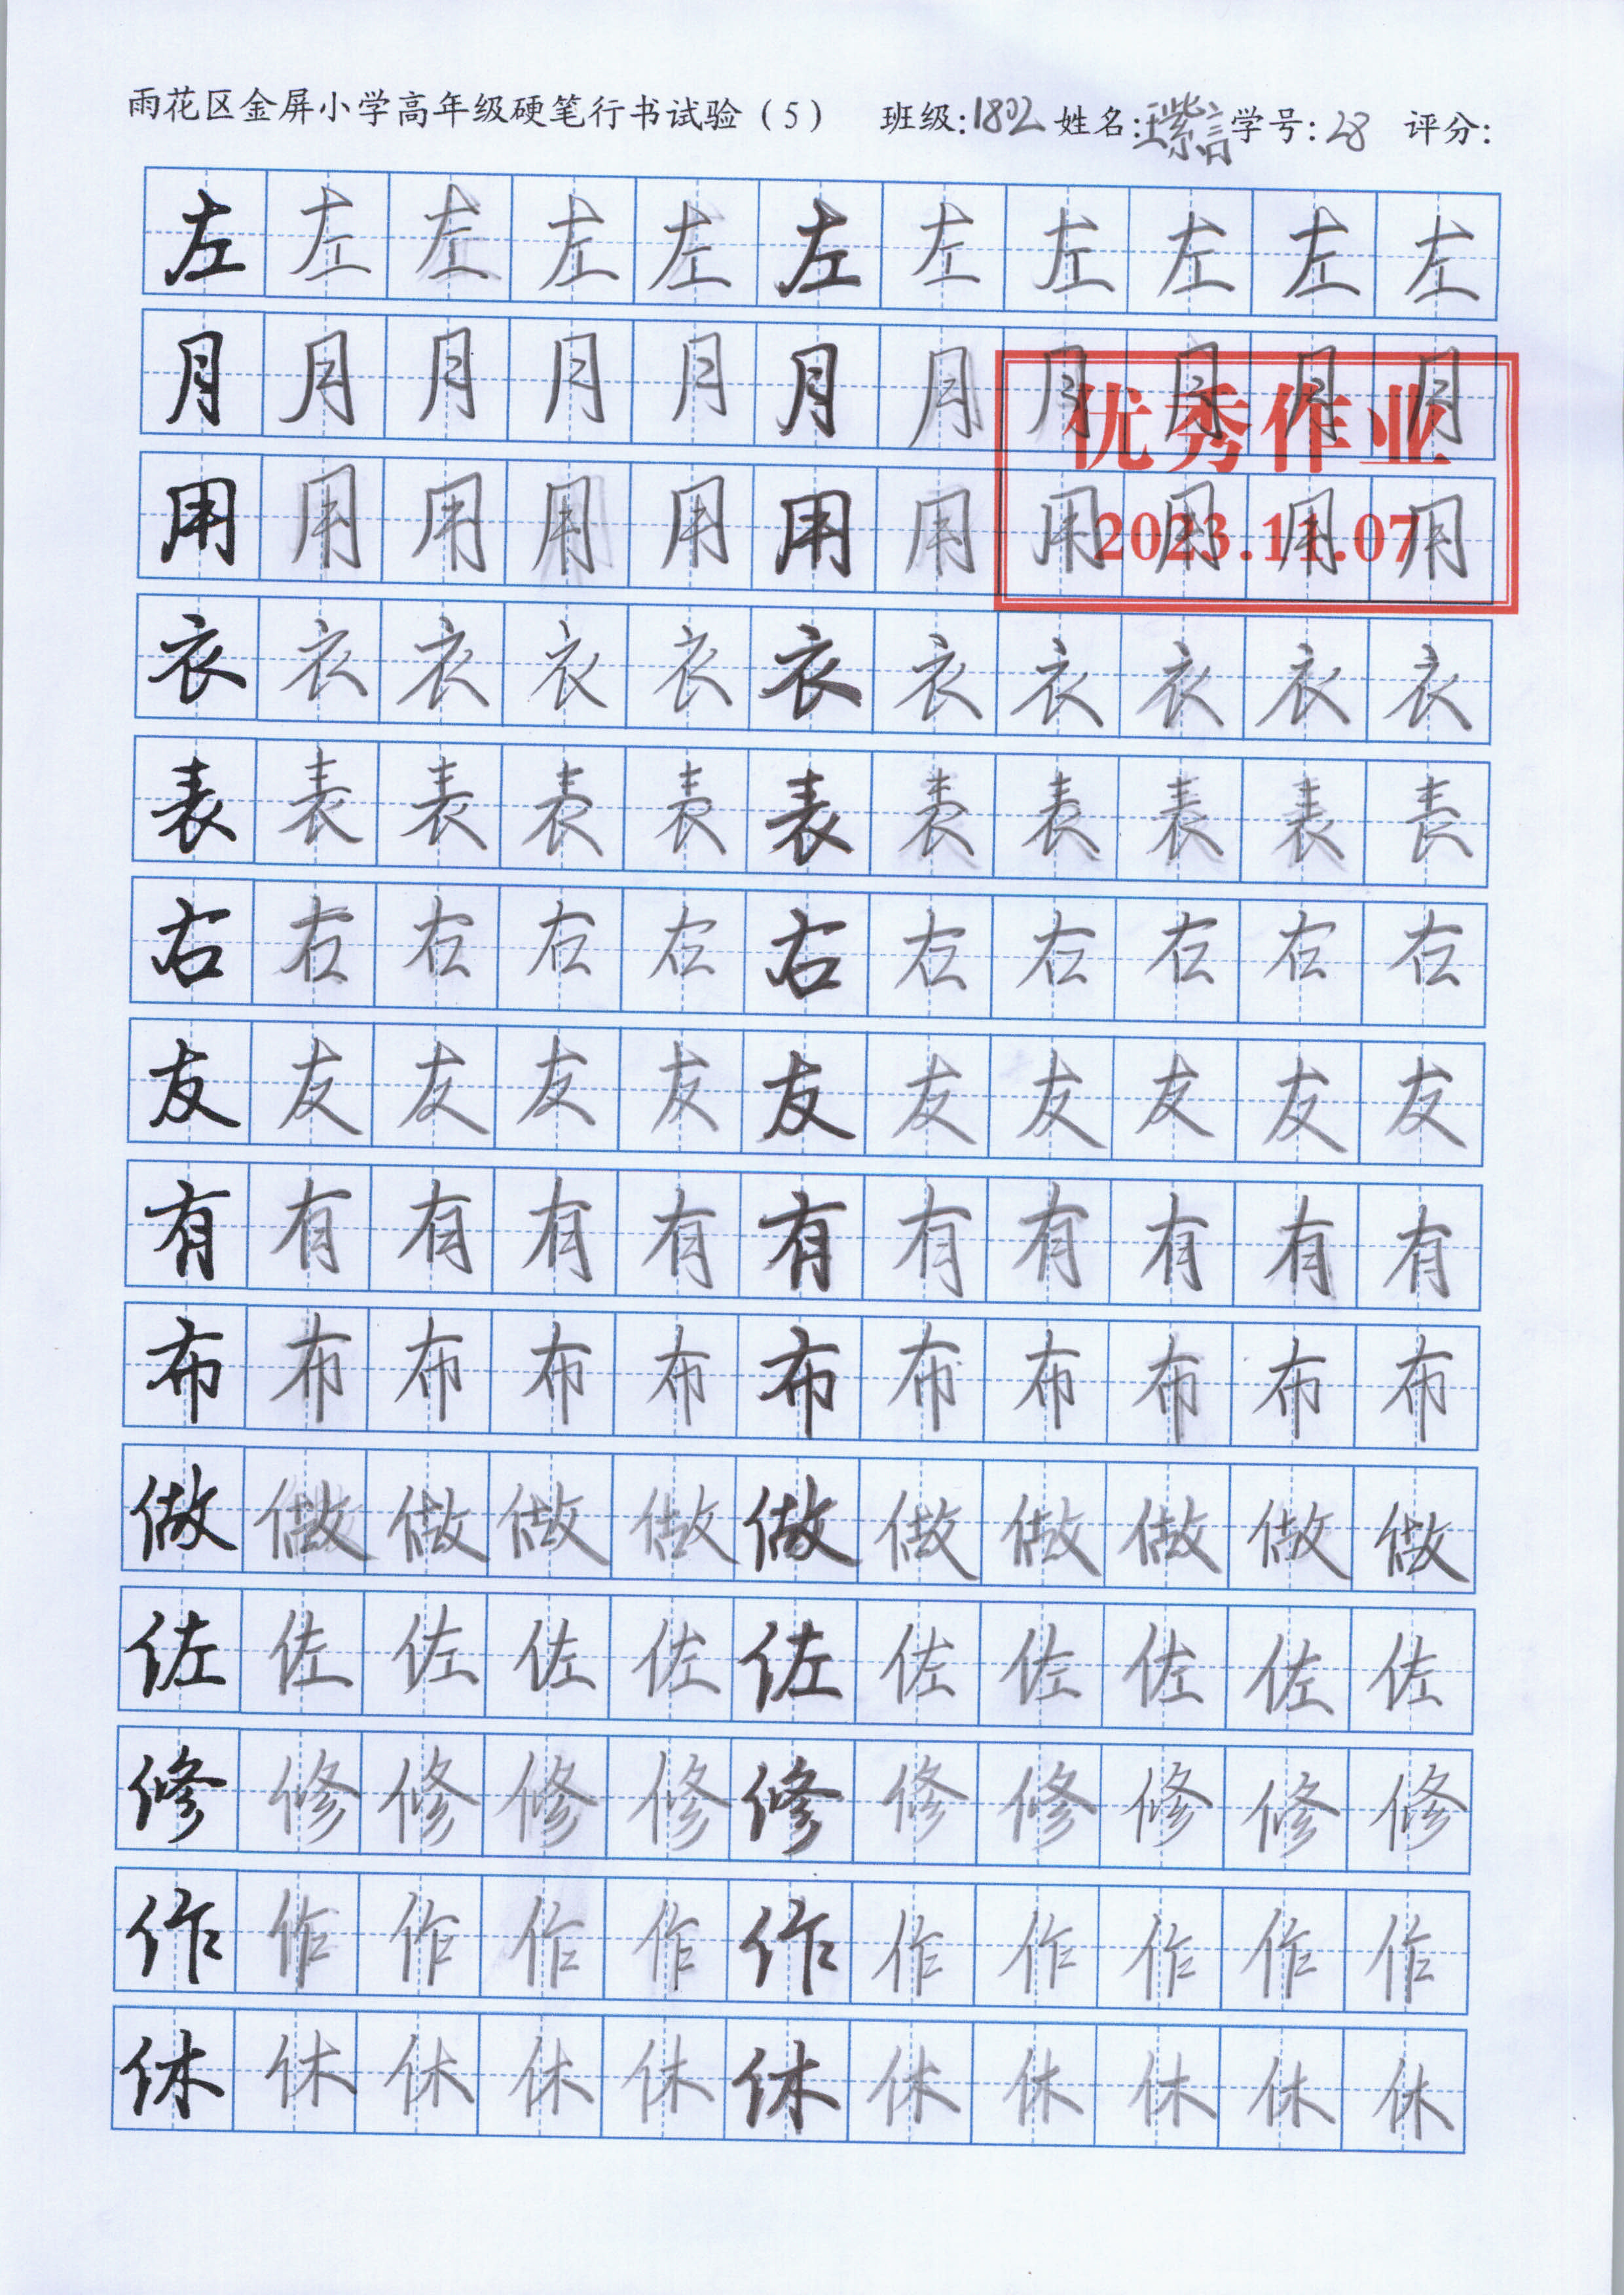 雨花区金屏小学高年级硬笔行书试验（5） 班级:1802 姓名:王紫言 学号:28 评分:
左左左左左左左左左左左
月月月月月月月月月月月
优秀作业
用用用用用用用用用用用
2023.11.07
衣衣衣衣衣衣衣衣衣衣衣
表表表表表表表表表表表
右右右右右右右右右右右
友友友友友友友友友友友
有有有有有有有有有有有
布布布布布布布布布布布
做做做做做做做做做做做
佐佐佐佐佐佐佐佐佐佐佐
修修修修修修修修修修修
作作作作作作作作作作作
休休休休休休休休休休休